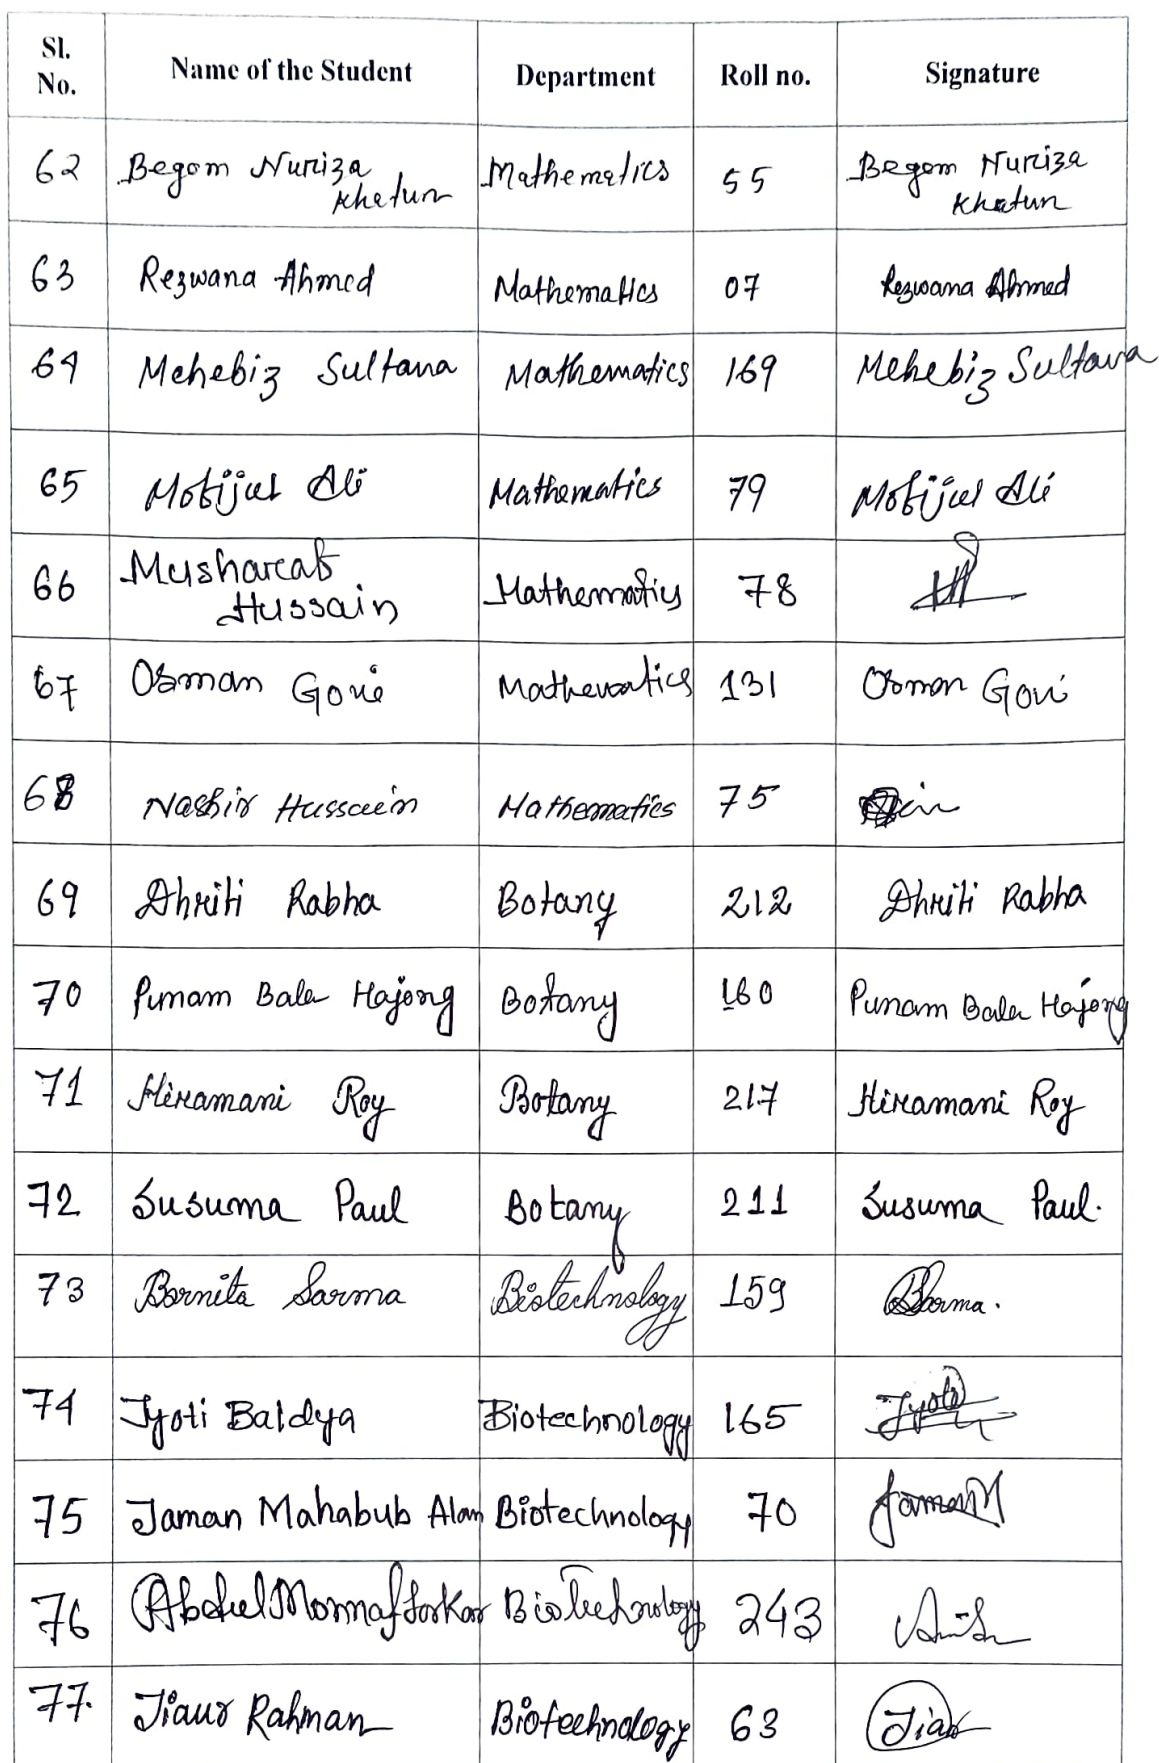 Sl. No. Name of the Student Department Roll no. Signature
62 Begom Nuriza Khatun Mathematics 55 Begom Nuriza Khatun
63 Rezwana Ahmed Mathematics 07 Rezwana Ahmed
64 Mehebiz Sultana Mathematics 169 Mehebiz Sultana
65 Mofijul Ali Mathematics 79 Mofijul Ali
66 Musharaf Hussain Mathematics 78
67 Osman Goni Mathematics 131 Osman Goni
68 Nashir Hussain Mathematics 75
69 Dhriti Rabha Botany 212 Dhriti Rabha
70 Punam Bala Hajong Botany 160 Punam Bala Hajong
71 Hiramani Roy Botany 217 Hiramani Roy
72 Susuma Paul Botany 211 Susuma Paul.
73 Barnita Sarma Biotechnology 159
74 Jyoti Baidya Biotechnology 165 Jyoti
75 Jaman Mahabub Alam Biotechnology 70
76 Abdul Monnaf Sorkar Biotechnology 243
77. Jiaur Rahman Biotechnology 63 Jiaur